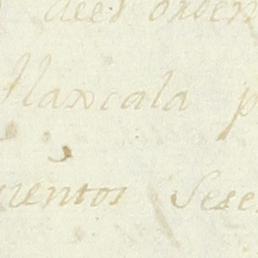 orden
Tlaxcala p
uentos Sese